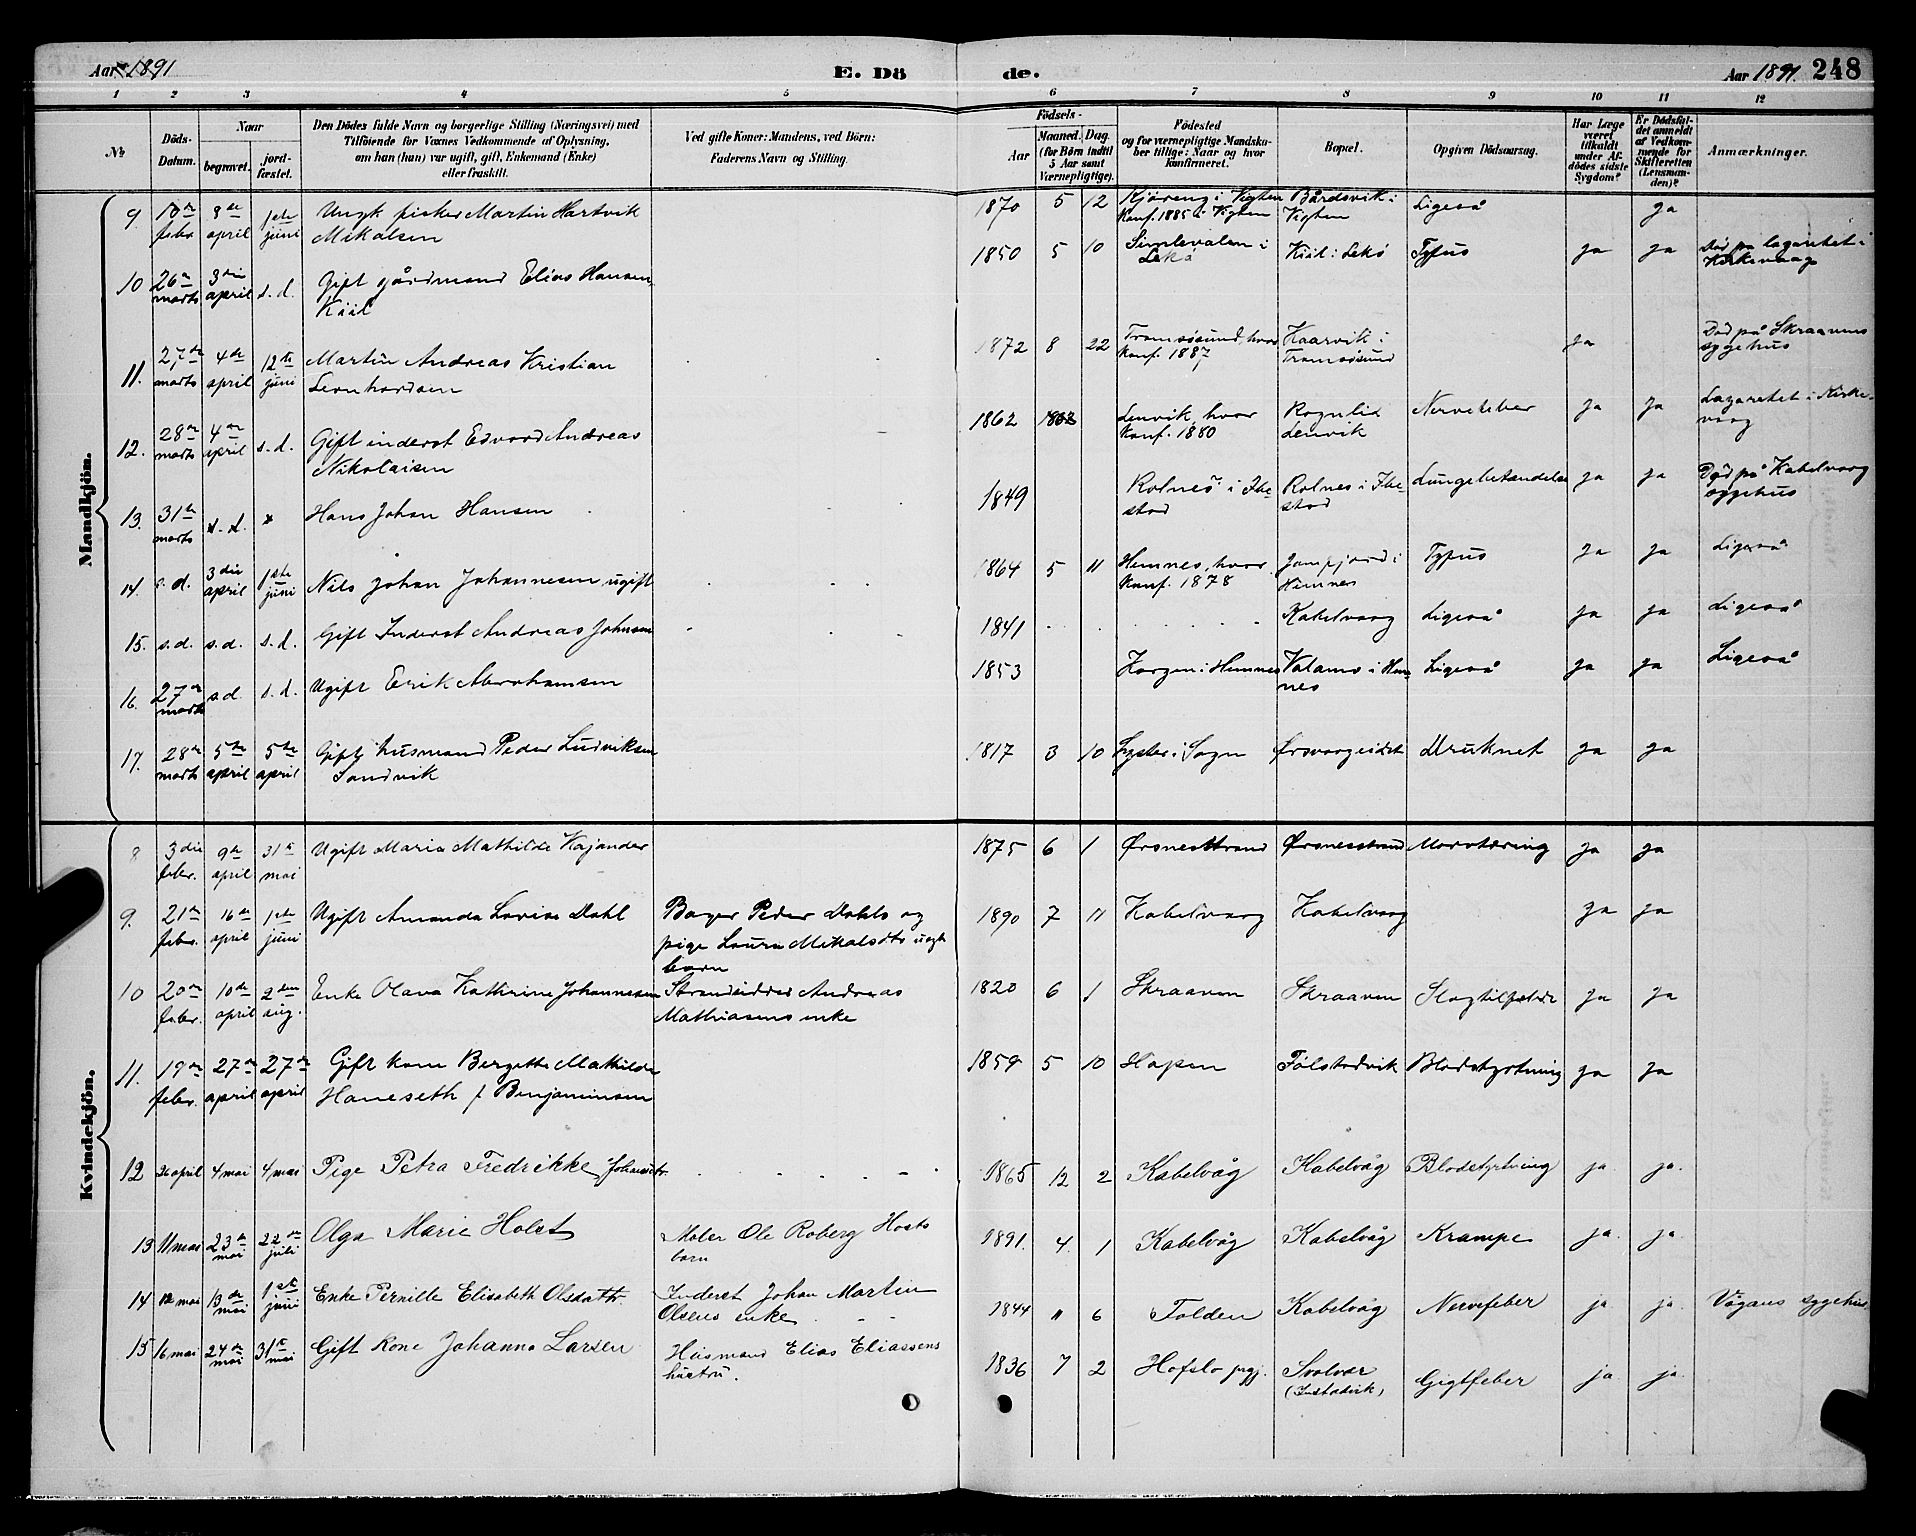 Aar 1891
E. Dö
de.
Aar 1891. 248
1 2 3 4 5 6 7 8 9 10 11 12
№
Döds-Datum.
Naar
begravet. jordfæstet.
Den Dödes fulde Navn og borgerlige Stilling (Næringsvei) med
Tilföiende for Voxnes Vedkommende af Oplysning,
om han (hun) var ugift, gift, Enkemand (Enke)
eller fraskilt.
Ved gifte Koner: Mandens, ved Börn:
Faderens Navn og Stilling.
Födsels-
Aar Maaned. Dag.
(for Börn indtil
5 Aar samt
Værnepligtige).
Födested
og for værnepligtige Mandskaber tillige: Naar og hvor
konfirmeret.
Bopæl.
Opgiven Dödsaarsag.
Har Læge
været
tilkaldt
under Afdödes sidste
Sygdom?
Er Dödsfaldet anmeldt
af Vedkommende for
Skifteretten
(Lensmanden)?
Anmærkninger.
Mandkjön.
9 10de febr. 3die april 1ste juni Ungk fisker Martin Hartvik Mikalsen 1870 5 12 Kjøreng i Vigten Konf. 1885 i Vigten Bårdsvik i Vigten Ligeså ja
10 26de marts 3die april s.d. Gift gårdmand Elias Hansen Kiil 1850 5 10 i Lekø Kiil i Lekø Tyfus ja ja Død på lazaretet i Kirkevaag
11. 27de marts 4de april 12te juni Martin Andreas Kristian Leonhardsen 1872 8 22 Tromsøsund, hvor konf. 1887 Kaarvik i Tromsøsund ja Død på Skraavens sygehus
12. 28de marts 4de april s.d. Gift inderst Edvard Andreas Nikolaisen 1862 1862 Lenvik, hvor konf. 1880 Rognlid Lenvik Nervefeber ja ja Lazaretet i Kirkevaag
13. 31te marts s.d. Hans Johan Hansen 1849 Rolnes i Ibestad Rolnes i Ibestad Lungebetændelse ja ja Død på Kabelvaag sygehus
14. s.d. 3die april 1ste juni Nils Johan Johannesen ugift 1864 5 11 Hemnes, hvor konf. 1878 i Hemnes Tyfus ja ja Ligeså
15. s.d. s.d. s.d. Gift Inderst Andreas Johnsen 1841 Kabelvaag Ligeså ja ja Ligeså
16. 27de marts s.d. s.d. Ugift Erik Abrahamsen 1853 Korgen i Hemnes i Hemnes Ligeså ja ja Ligeså
17. 28de marts 5te april 5te april Gift husmand Peder Ludviksen Sandvik 1817 3 10 Lyster i Sogn Ørsvaageidet Druknet ja ja
Kvindekjön.
8 3die febr. 9de april 31te mai Ugift Maria Mathilde Kajander 1875 6 1 Ørsnesstrand Ørsnesstrand Marvtæring ja ja
9. 21de febr. 16de april 1ste juni Ugift Amanda Lovise Dahl Bager Peder Dahls og pige Laura Mikalsdts uægte barn 1890 7 11 Kabelvaag Kabelvaag ja ja
10 20de febr. 10de april 2den aug. Enke Olava Kathrine Johannesen Strandsidder Andreas Mathiasens enke 1820 6 1 Skraaven Skraaven Slagtilfælde ja ja
11. 19de febr. 27de april 27de april Gift kone Bergette Mathilde Haneseth f. Benjaminsen 1859 5 10 Hopen Følstadvik Blodstyrtning ja ja
12 26 april 4 mai 4 mai Pige Petra Fredrikke Johansdtr. 1865 12 2 Kabelvåg Kabelvåg Blodstyrtning ja. ja.
13 11 mai 23de mai 22de juli Olga Marie Holst Maler Ole Roberg Hosts barn 1891. 4. 1 Kabelvåg Kabelvåg Krampe ja. ja.
14 12 mai 13de mai 1ste juni Enke Pernille Elisabeth Olsdattr. Inderst Johan Martin Olsens enke 1844 11 6 Folden Kabelvåg Nervefeber ja. ja. Vågans sygehus
15 16 mai 24de mai 31te mai Gift Kone Johanna Larsen Husmand Elias Eliassens hustru. 1836 7 2 Hofslo prgj. Svolvær Gigtfeber ja ja.